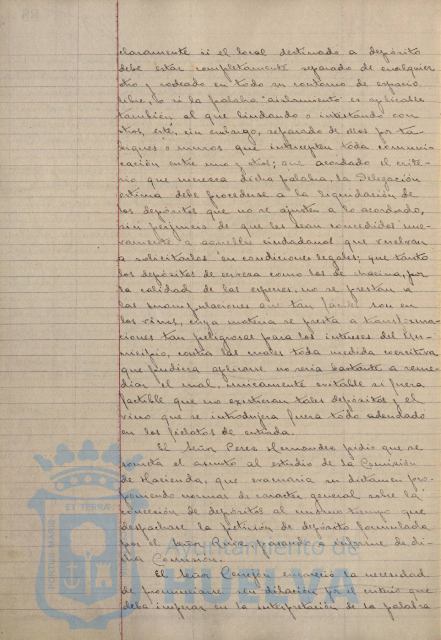 claramente si el local destinado a depósito
debe estar completamente separado de cualquier
otro y rodeado en todo su contorno de espacio
libre, o si la palabra "aislamiento" es aplicable
también al que lindando o intestando con
otros, esté, sin embargo, separado de ellos por ta-
biques o muros que intercepten toda comuni-
cación entre uno y otros; que acordado el crite-
rio que merezca dicha palabra, la Delegación
estima debe procederse a la liquidación de
los depósitos que no se ajusten a lo acordado,
sin perjuicio de que les sean concedidos nue-
vamente a aquellos ciudadanos que vuelvan
a solicitarlos en condiciones legales; que tanto
los depósitos de cerveza como los de chacina, por
la calidad de las especies, no se prestan a
las manipulaciones que tan fáciles son en
los vinos, cuya materia se presta a transforma-
ciones tan peligrosas para los intereses del Mu-
nicipio, contra las cuales toda medida coercitiva
que pudiera aplicarse no sería bastante a reme-
diar el mal, únicamente evitable si fuera
factible que no existieran tales depósitos y el
vino que se introdujera fuera todo adeudado
en los fielatos de entrada.
El Señor Perez Hernandez pidió que se
someta el asunto al estudio de la Comisión
de Hacienda, que evacuaría su dictamen pro-
poniendo normas de carácter general sobre la
concesión de depósitos al mismo tiempo que
despachase la petición de depósito formulada
por el Señor pasando a informe de di-
cha Comisión.
El Señor Cerrejón encareció la necesidad
de pronunciarse sin dilación por el criterio que
deba imperar en la interpretación de la palabra
Ayuntamiento de
HUELVA